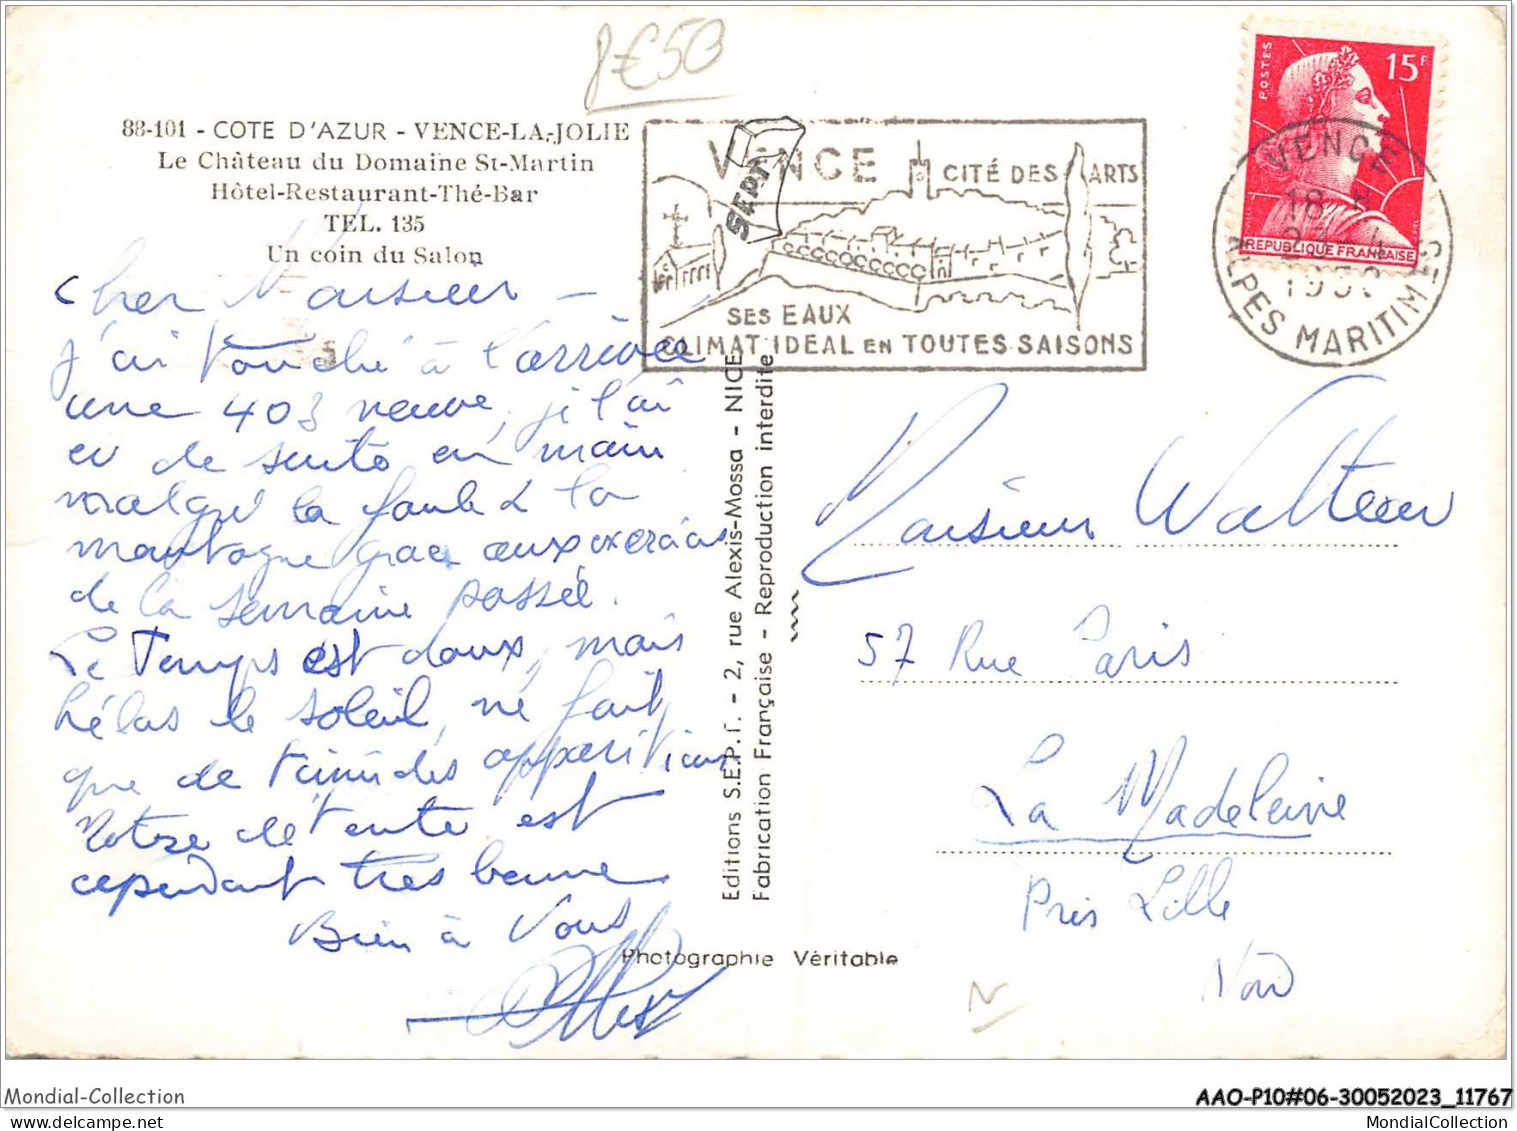 8€50
88-101 - COTE D'AZUR - VENCE-LA-JOLIE
Le Château du Domaine St-Martin
Hôtel-Restaurant-Thé-Bar
TEL. 135
Un coin du Salon
Cher Monsieur -
j'ai touché à l'arrivée
une 403 neuve, je l'ai
eu de suite en main
malgré la foule & la
montagne grace aux exercices
de la semaine passée.
Le Temps est doux, mais
hélas le soleil, ne fait
que de timides apparitions
Notre détente est
cependant très bonne
Bien à Vous
VENCE CITÉ DES ARTS
SES EAUX
CLIMAT IDEAL EN TOUTES SAISONS
SEPT
POSTES
15F
REPUBLIQUE FRANÇAISE
VENCE
18
23-4
ALPES MARITIMES
Editions S.E.P.T. - 2, rue Alexis-Mossa - NICE
Fabrication Française - Reproduction interdite
Photographie Véritable
Monsieur Watteau
57 Rue Paris
La Madeleine
Près Lille
Nord
N
Mondial-Collection
AAO-P10#06-30052023_11767
MondialCollection